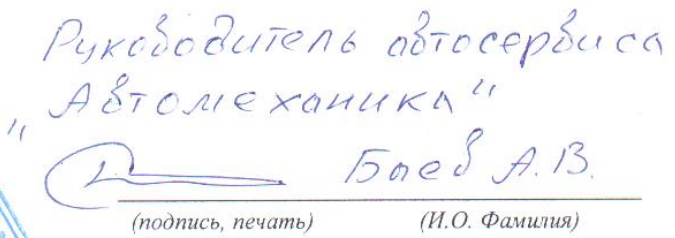 Руководитель автосервиса
"Автомеханика"
Баев А.В.
(подпись, печать) (И.О. Фамилия)